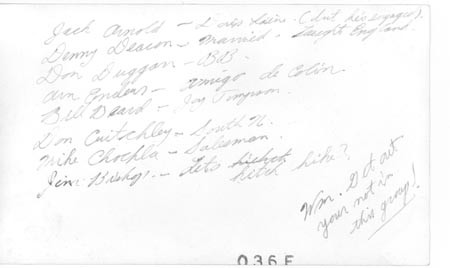 Jack Arnold - Loves Laine. (but he's engaged).
Denny Deacon - Married - Taught England
Don Duggan - BB.
Arn Enders - amigo de Colin.
Bill Beard - Joy Simpson.
Don Critchley - South N.
Mike Chochla - Salesman.
Jim Bishop! - Lets hitch hike?
Wm. G et out
your not in
this group!
036F